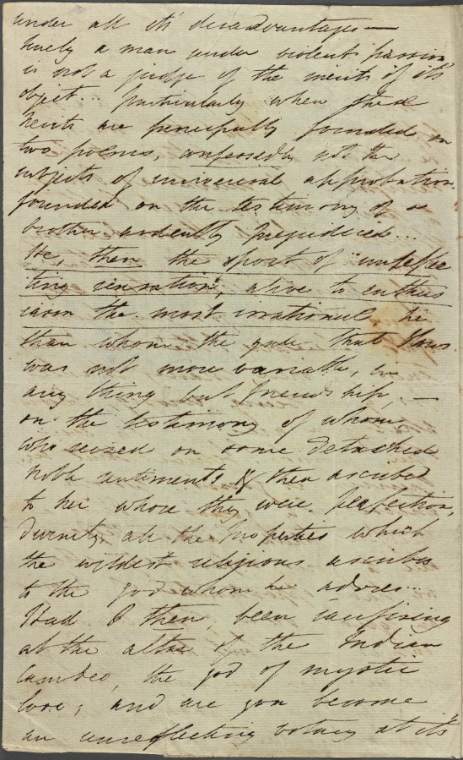 under all its disadvantages —
surely a man under violent passion
is not a judge of the merits of its
object... particularly when these
merits are principally founded on
two poems, confessedly not the
subjects of universal approbation
founded on the testimony of a
brother ardently prejudiced...
He, then the sport of "unreflec
ting sensation" alive to enthus
iasm the most irrational he
than whom the gale that blows
was not more variable, in
any thing but friendship, —
on the testimony of whom
who seized on some detached
noble sentiments, & then ascribed
to her whose they were, perfection,
divinity, all the properties which
the wildest religions ascribe
to the god whom he adores..
Had I then, been sacrificing
at the altar of the Indian
Camdeo, the god of mystic
love; and are you become
an unreflecting votary at its